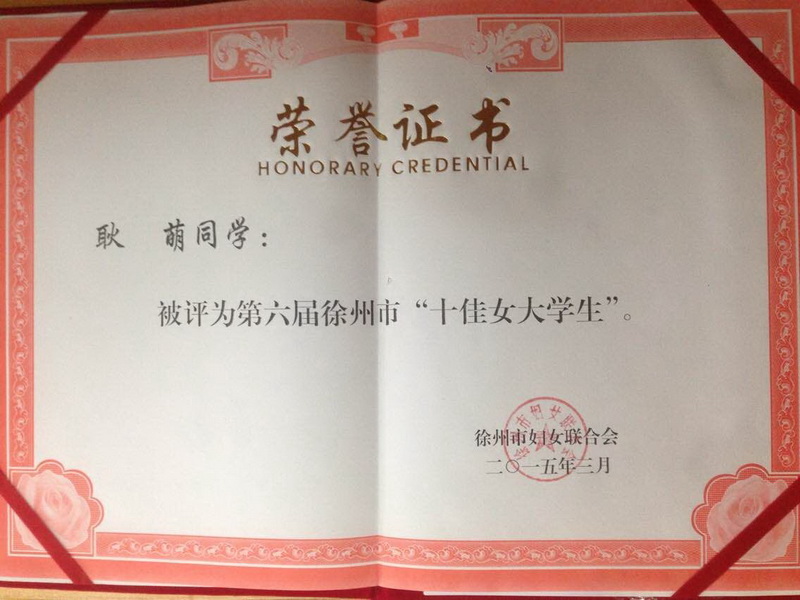 荣誉证书
HONORARY CREDENTIAL
耿 萌同学：
被评为第六届徐州市“十佳女大学生”。
徐州市妇女联合会
二〇一五年三月